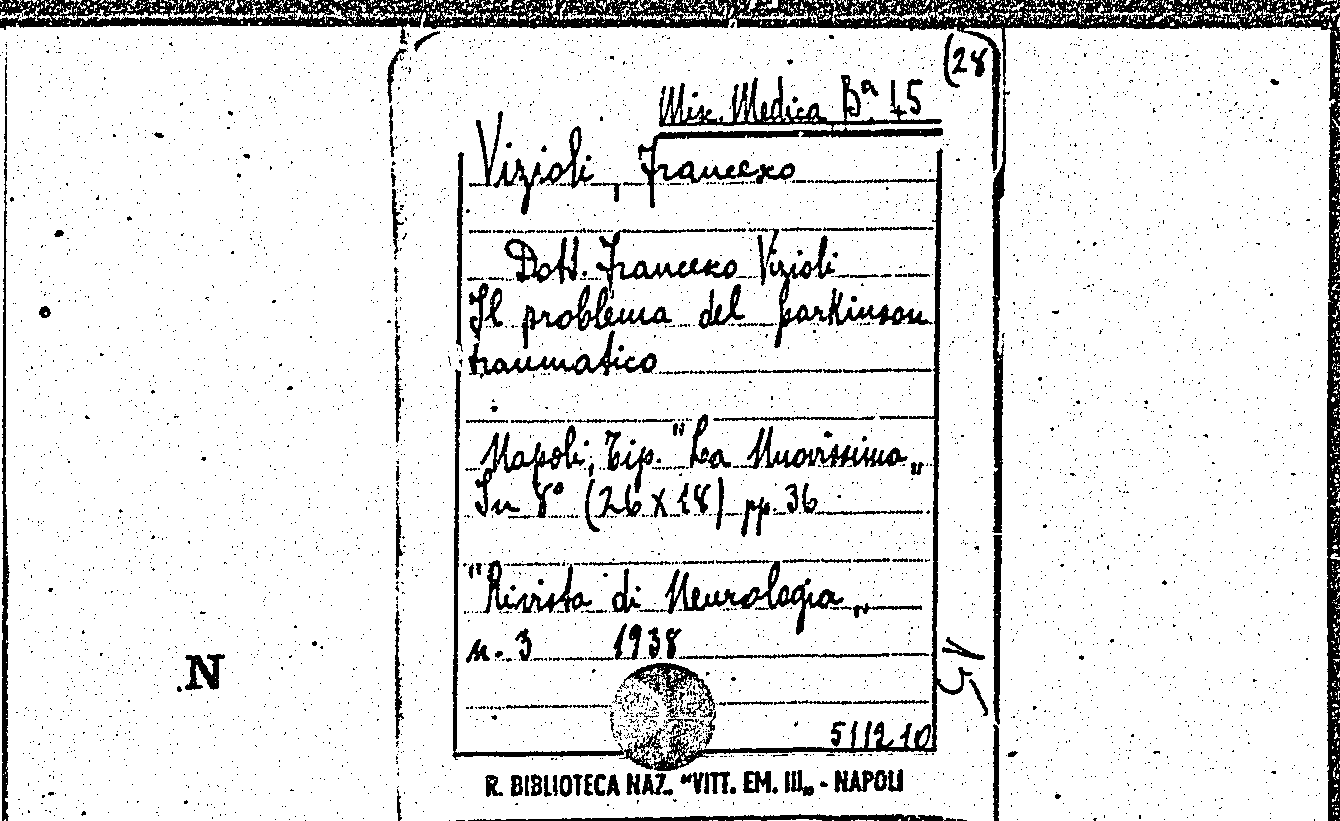 (28
Misc. Medica Bª. 15
Vizioli, Francesco
Dott. Francesco Vizioli
Il problema del parkinson
traumatico
Napoli, Tip. "La Nuovissima„
In 8° (26 x 18) pp. 36
"Rivista di Neurologia„
n. 3 1938
15
N
511210
R. BIBLIOTECA NAZ. "VITT. EM. III„ - NAPOLI